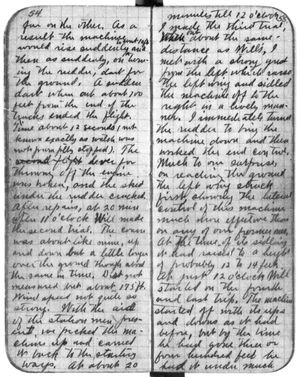 54
gun on the other. As a
result the machine
would rise suddenly to about 10 ft and
then as suddenly, on turn-
ing the rudder, dart for
the ground. A sudden
dart when out about 100
feet from the end of the
tracks ended the flight.
Time about 12 seconds (not
known exactly as watch was
not promptly stopped). The
lever for
throwing off the engine
was broken, and the skid
under the rudder cracked.
After repairs, at 20 min.
after 11 o'clock Will made
the second trial. The course
was about like mine, up
and down but a little longer
over the ground though about
the same in time. Dist not
measured but about 175 ft.
Wind speed not quite so
strong. With the aid
of the station men pres-
ent, we picked the ma-
chine up and carried
it back to the starting
ways. At about 20
minutes till 12 o'clock
I made the third trial.
When out about the same
distance as Will's, I
met with a strong gust
from the left which raised
the left wing and sidled
the machine off to the
right in a lively man-
ner. I immediately turned
the rudder to bring the
machine down and then
worked the end control.
Much to our surprise,
on reaching the ground
the left wing struck
first, showing the lateral
control of this machine
much more effective than
on any of our former ones.
At the time of its sidling
it had raised to a height
of probably 12 to 14 feet.
At just 12 o'clock Will
started on the fourth
and last trip. The machine
started off with its ups
and downs as it had
before, but by the time
he had gone three or
four hundred feet he
had it under much